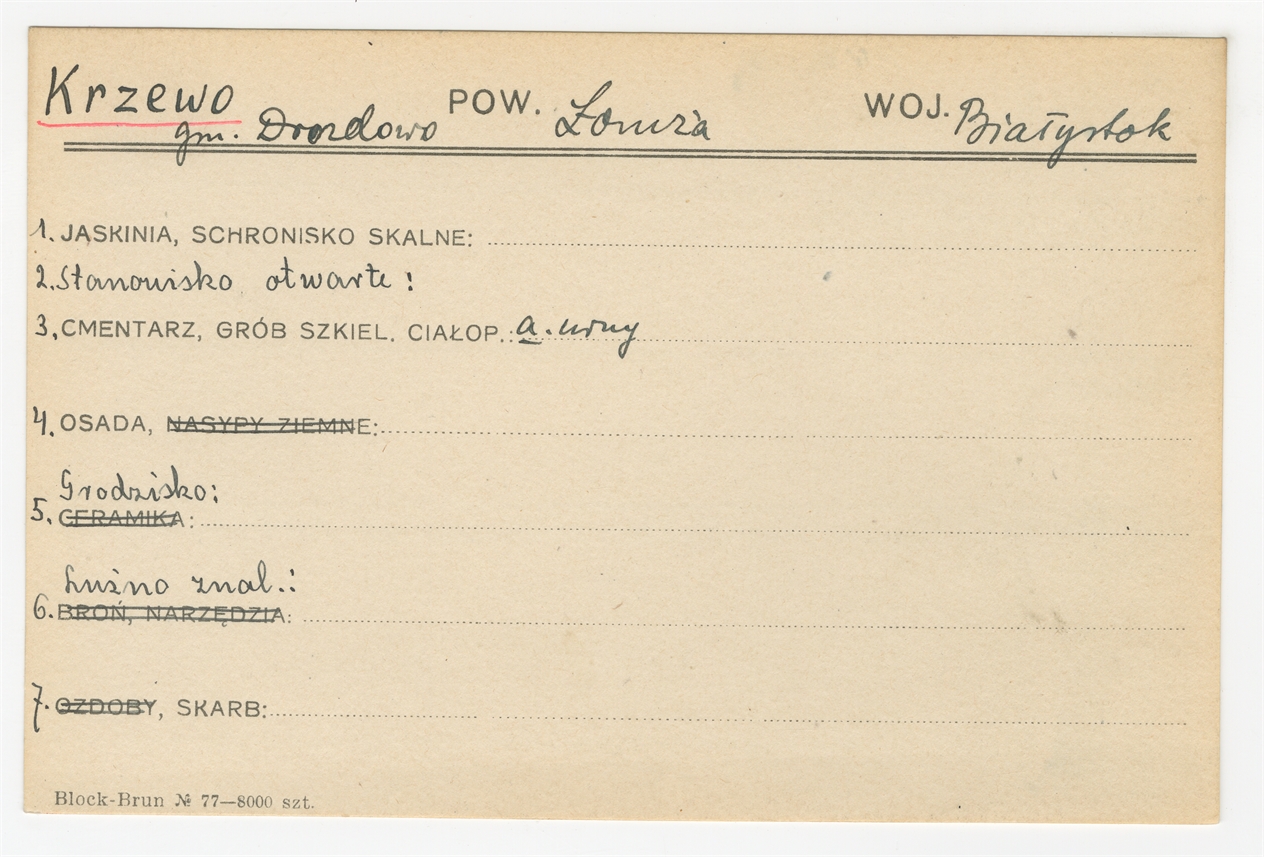 Krzewo POW. Łomża WOJ. Białystok
gm. Drozdowo
1. JASKINIA, SCHRONISKO SKALNE:
2. Stanowisko otwarte:
3. CMENTARZ, GRÓB SZKIEL. CIAŁOP.: a. urny
4. OSADA, NASYPY ZIEMNE:
Grodzisko:
5. CERAMIKA:
Luźno znal.:
6. BROŃ, NARZĘDZIA:
7. OZDOBY, SKARB:
Block-Brun № 77—8000 szt.